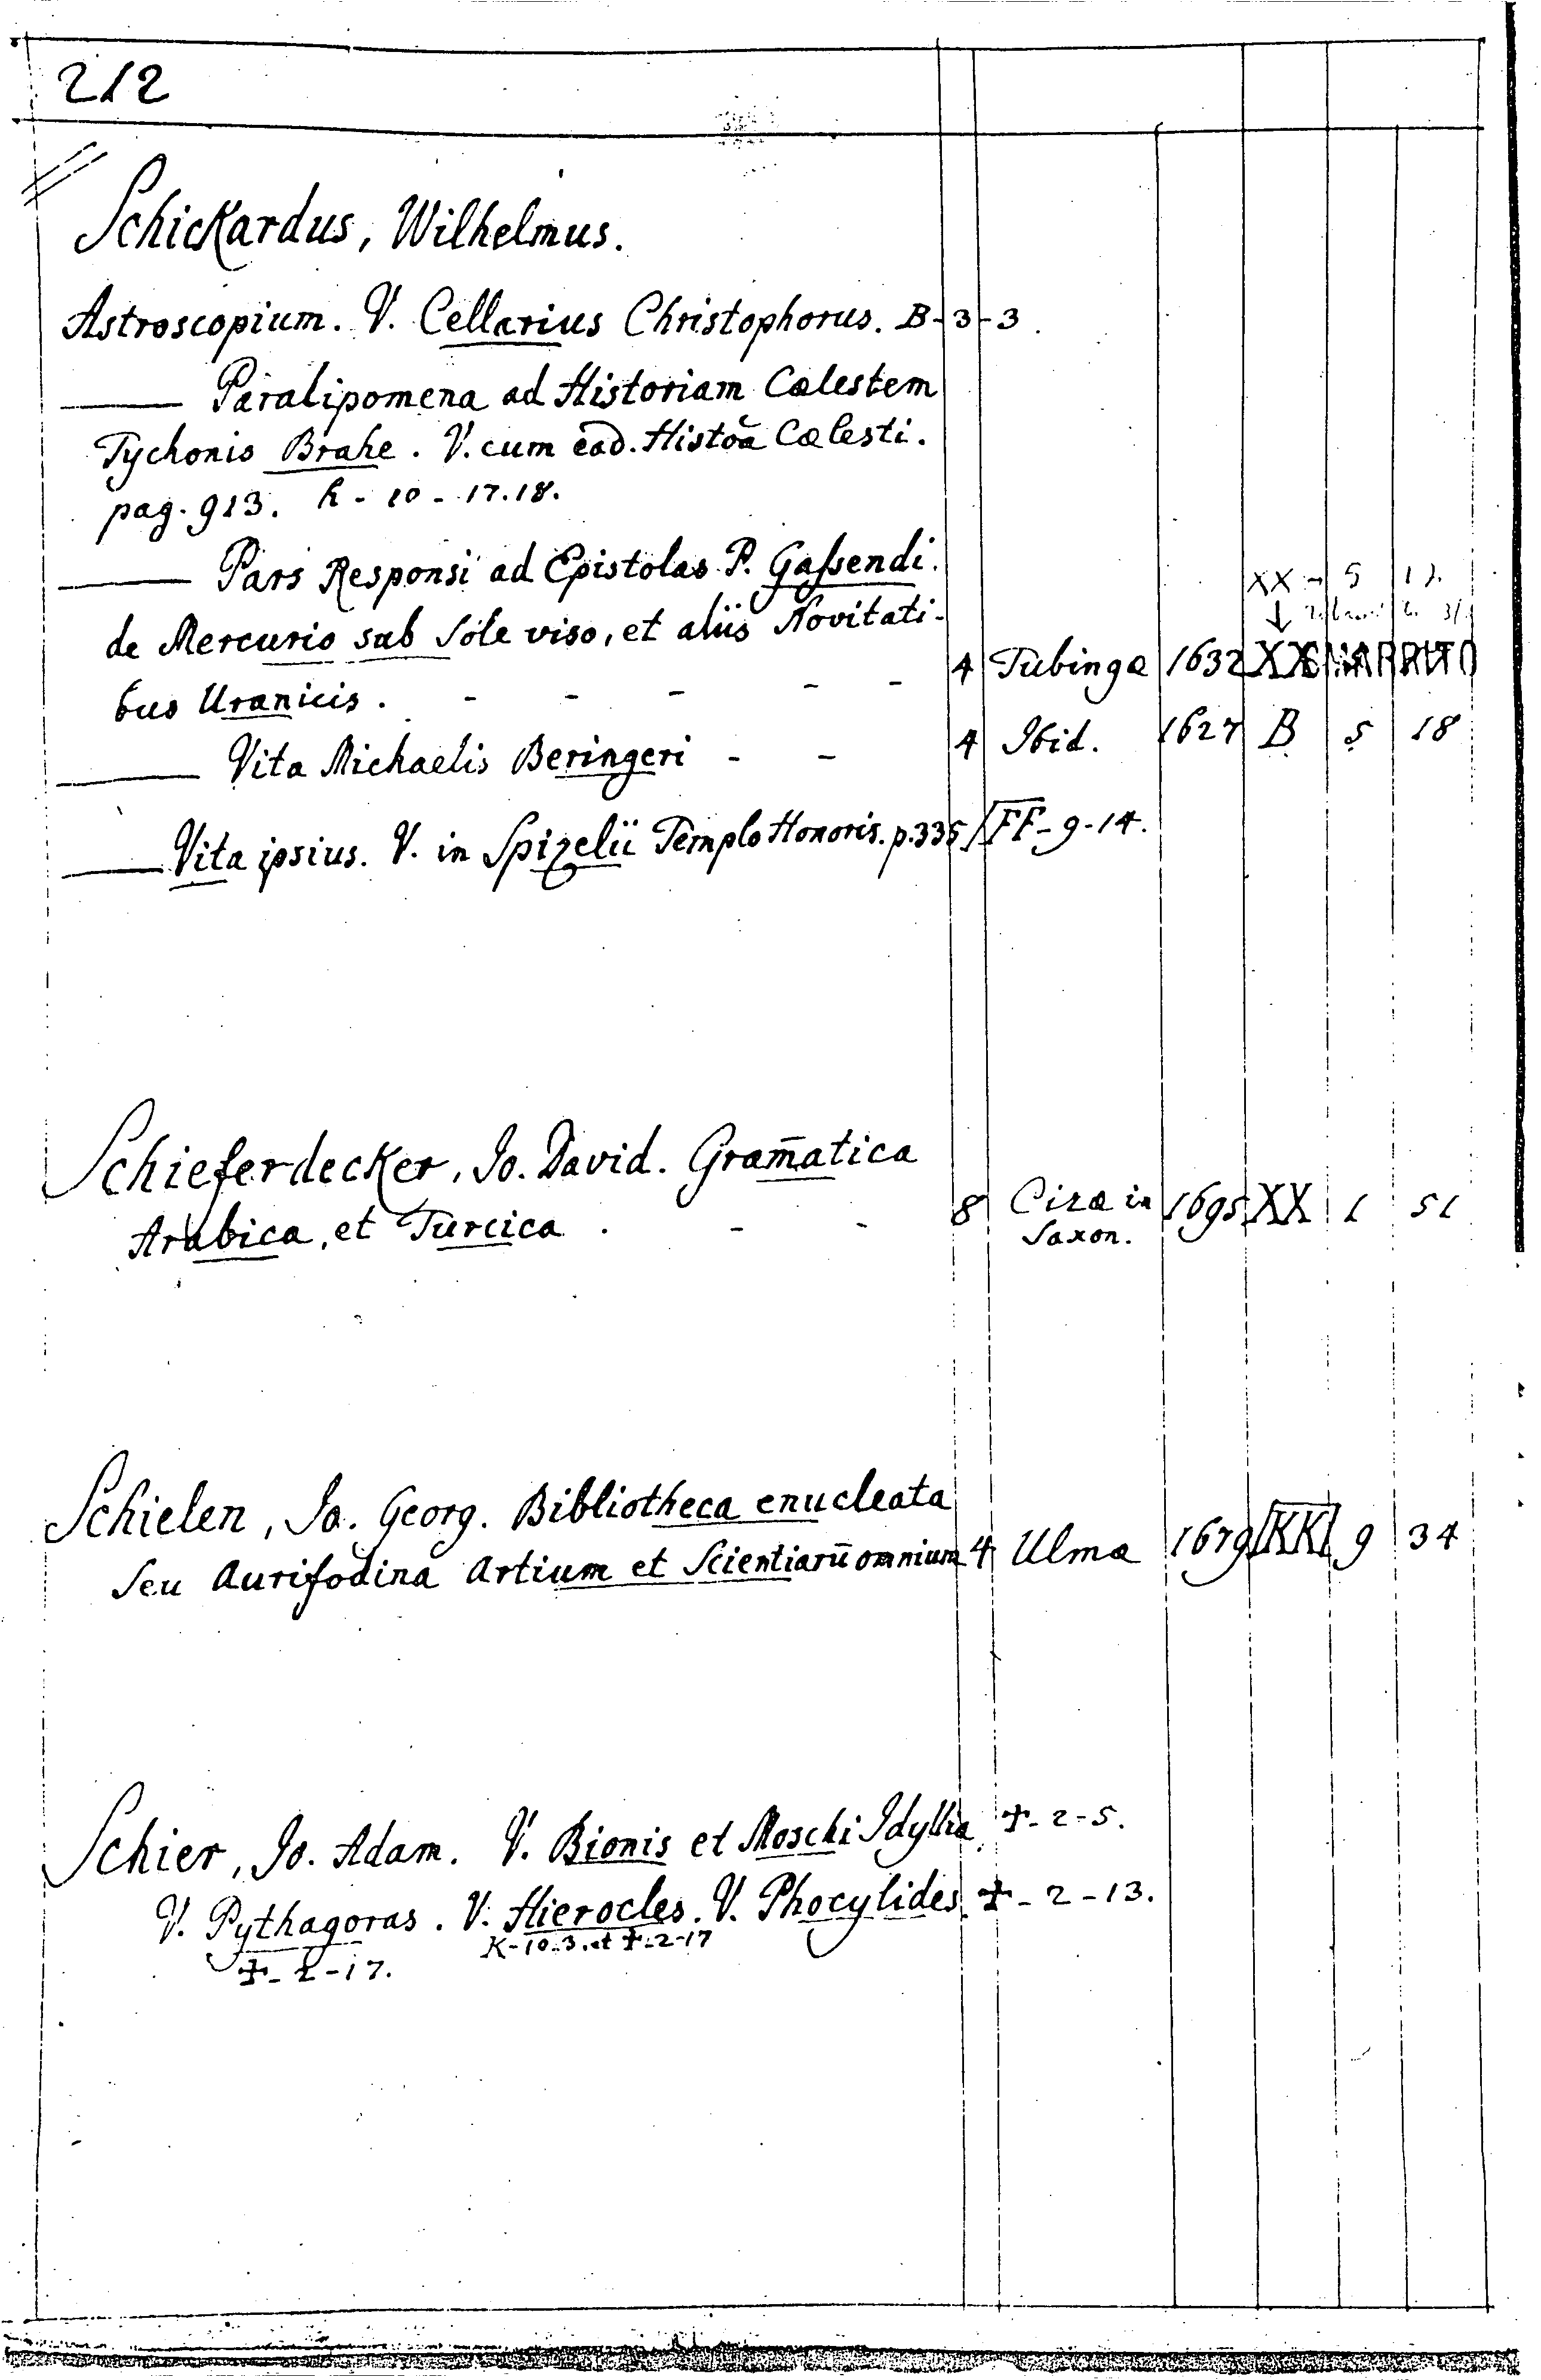 212
Schickardus, Wilhelmus.
Astroscopium. V. Cellarius Christophorus. B-3-3.
—— Paralipomena ad Historiam Cælestem
Tychonis Brahe. V. cum ead. Histoã Cælesti.
pag. 913. h - 10 - 17.18.
—— Pars Responsi ad Epistolas P. Gaſsendi.
XX - 5 17.
de Mercurio sub Sole viso, et aliis Novitati-
bus Uranicis. - - - - - 4 Tubingæ 1632 XX SMARRITO
—— Vita Michaelis Beringeri - - 4 Ibid. 1627 B 5 18
—— Vita ipsius. V. in Spizelii Templo Honoris. p. 335 / FF-9-14.
Schieferdecker, Jo. David. Gram̄atica
Arabica, et Turcica. - - 8 Cizæ in Saxon. 1695 XX 1 51
Schielen, Jo. Georg. Bibliotheca enucleata
Seu Aurifodina Artium et Scientiarū omnium 4 Ulmæ 1679 KK 9 34
Schier, Jo. Adam. V. Bionis et Moschi Idyllia ✝-2-5.
V. Pythagoras. V. Hierocles. V. Phocylides ✝-2-13.
✝-2-17. K-10-3. et ✝-2-17